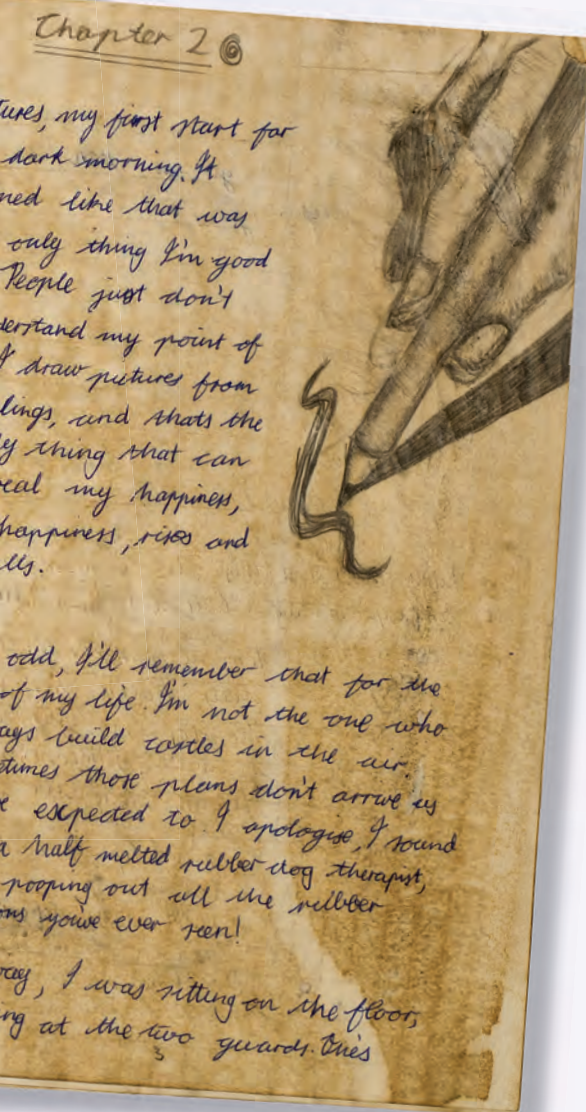 Chapter 2
tures, my first start for
dark morning. It
med like that was
only thing I'm good
People just don't
derstand my point of
I draw pictures from
lings, and thats the
ly thing that can
veal my happiness,
happiness, rises and
lls.
odd, I'll remember that for the
of my life. I'm not the one who
ays build castles in the air.
etimes those plans don't arrive as
e expected to. I apologise, I sound
a half melted rubber dog therapist,
pooping out all the rubber
ons you've ever seen!
way, I was sitting on the floor,
ing at the two guards. One's